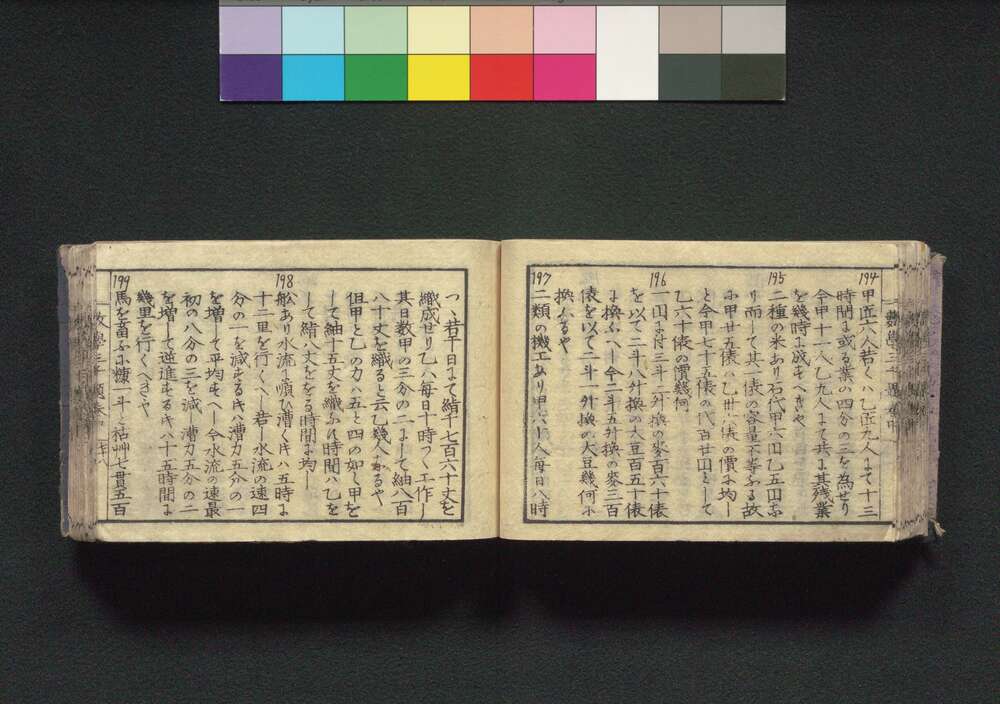 194
甲匠六八人若くハ乙匠九人にて十三
時間に或る業の四分の三を為せり
今甲十一人乙九人にて共に其残業
を幾時に成すへきや
195
二種の米あり石代甲六円乙五円な
り而して其一俵の容量不等なる故
に甲廿五俵ハ乙卅六俵の價に均し
と今甲七十五俵の代百廿円として
乙六十俵の價幾何
196
一円に付三斗二升換の麥百六十俵
を以て二斗八升換の大豆百五十俵
に換ふへし今二斗五升換の麥三百
俵を以て二斗一升換の大豆幾何に
換ふるや
197
二類の機工あり甲六十人毎日八時
つゝ若干日にて絹千七百六十丈を
織成せり乙ハ毎日十時つゝ工作し
其日数甲の三分の二にして紬八百
八十丈を織ると云乙幾人なるや
但甲と乙の力ハ五と四の如し甲を
して紬十五丈を織ふれ時間ハ乙を
して絹八丈をを る時間に均し
198
舩あり水流に順ひ漕く時ハ五時に
十二里を行くへし若し水流の速四
分の一を減する時漕力五分の一
を増して平均すへし今水流の速最
初の八分の三を減し漕力五分の二
を増して逆進する時ハ十五時間に
幾里を行くへきや
199
馬を畜ふに糠一斗と枯艸七貫五百